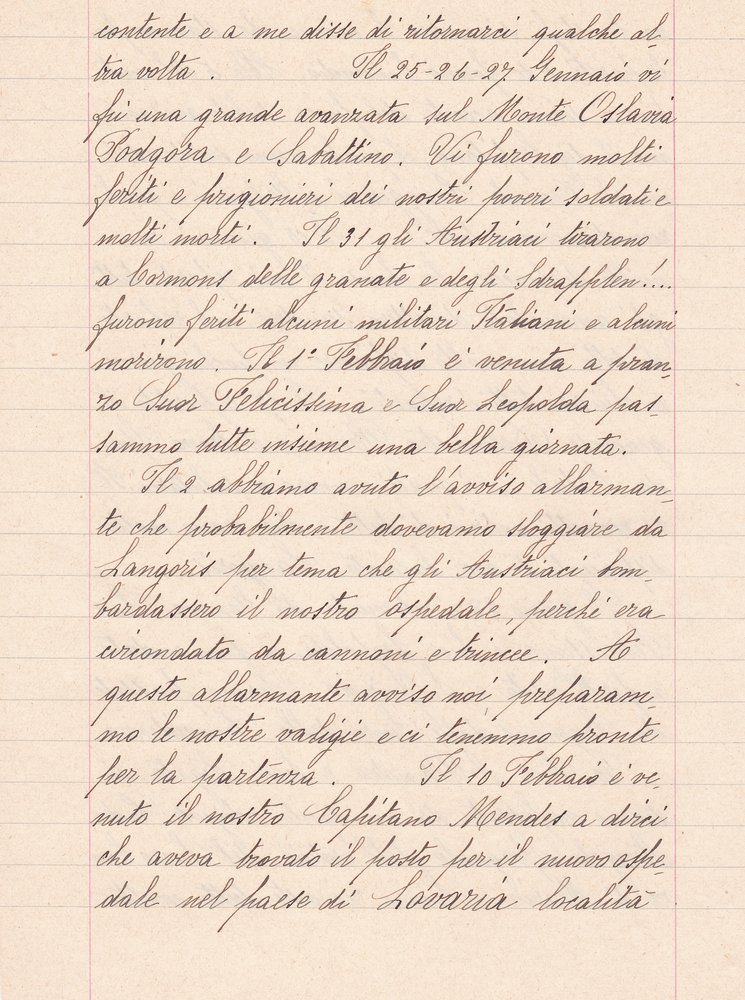 contente e a me disse di ritornarci qualche al-
tra volta. Il 25-26-27 Gennaio vi
fù una grande avanzata sul Monte Oslavia
Podgora e Sabattino. Vi furono molti
feriti e prigionieri dei nostri poveri soldati e
molti morti. Il 31 gli Austriaci tirarono
a Cormons delle granate e degli Sdrapplen!....
furono feriti alcuni militari Italiani e alcuni
morirono. Il 1° Febbraio è venuta a pran-
zo Suor Felicissima e Suor Leopolda pas-
sammo tutte insieme una bella giornata.
Il 2 abbiamo avuto l'avviso allarman-
te che probabilmente dovevamo sloggiare da
Langoris per tema che gli Austriaci bom-
bardassero il nostro ospedale, perchè era
circondato da cannoni e trincee. A
questo allarmante avviso noi preparam-
mo le nostre valigie e ci tenemmo pronte
per la partenza. Il 10 Febbraio è ve-
nuto il nostro Capitano Mendes a dirci
che aveva trovato il posto per il nuovo ospe-
dale nel paese di Lovaria località